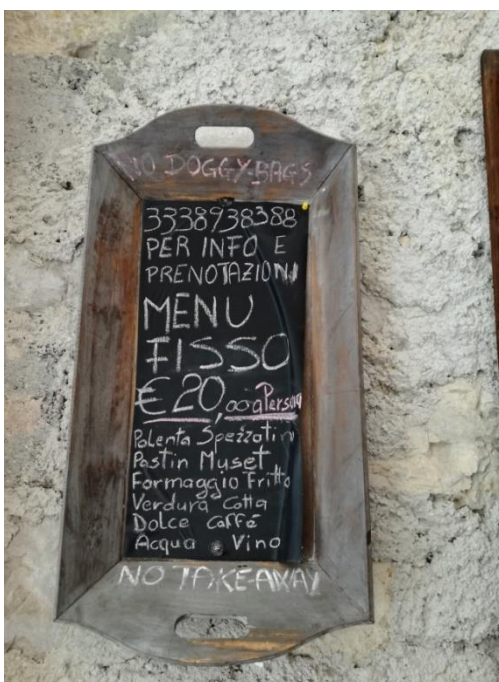 NO DOGGY-BAGS
3338938388
PER INFO E
PRENOTAZIONI
MENU
FISSO
€ 20,00 a Persona
Polenta Spezzatino
Pastin Muset
Formaggio Fritto
Verdura Cotta
Dolce Caffé
Acqua e Vino
NO TAKE-AWAY